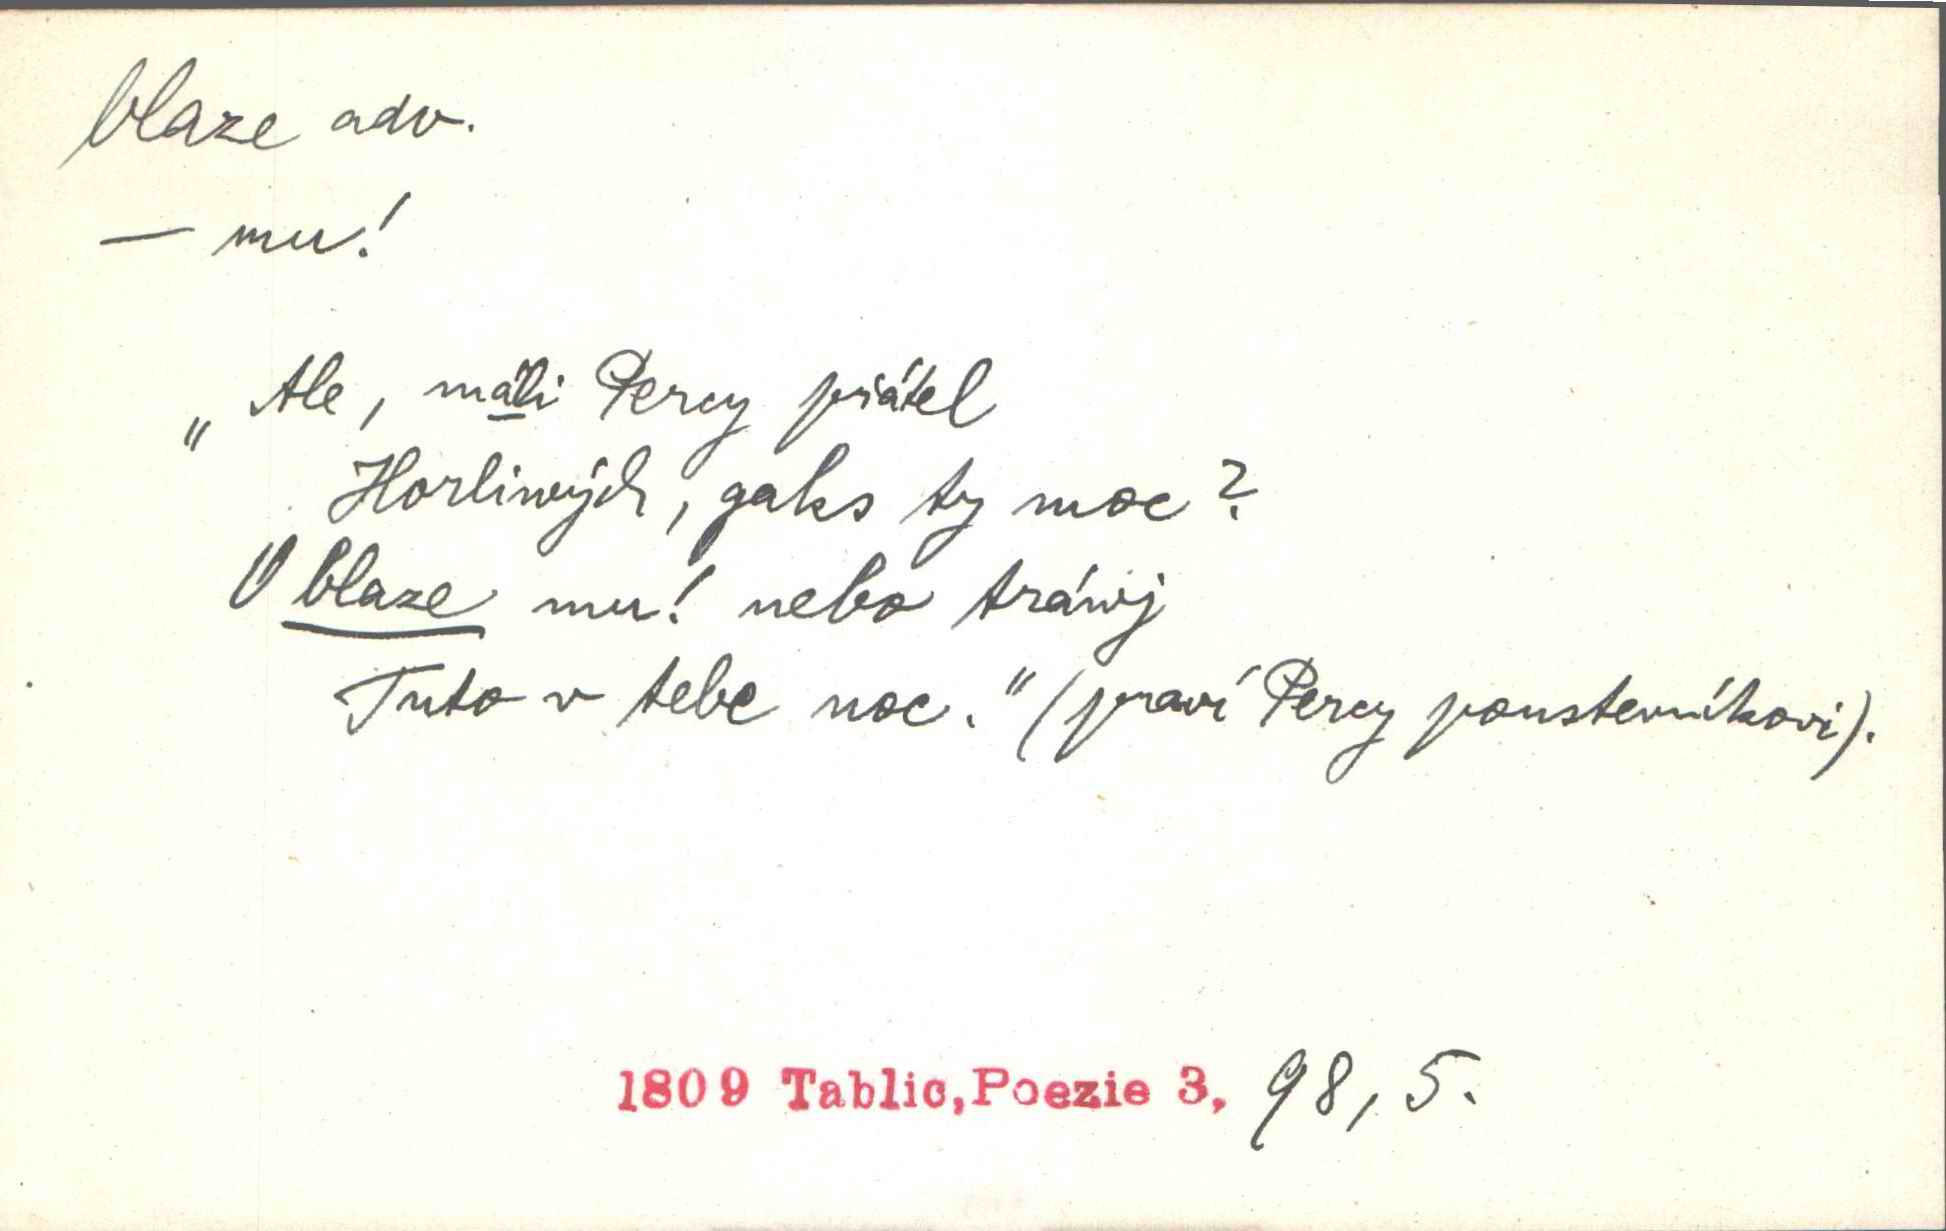 blaze adv.
— mu!
„Ale, máli Percy přátel
Horliwých, gaks ty moc?
O blaze mu! nebo tráwj
Tuto v tebe noc." (praví Percy poustevníkovi).
1809 Tablic, Poezie 3, 98, 5.